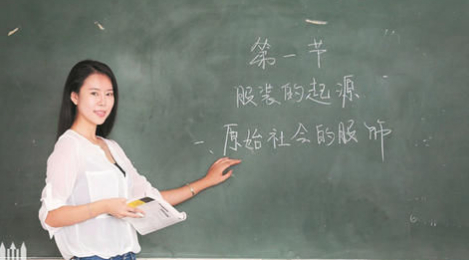 第一节
服装的起源
一、原始社会的服饰